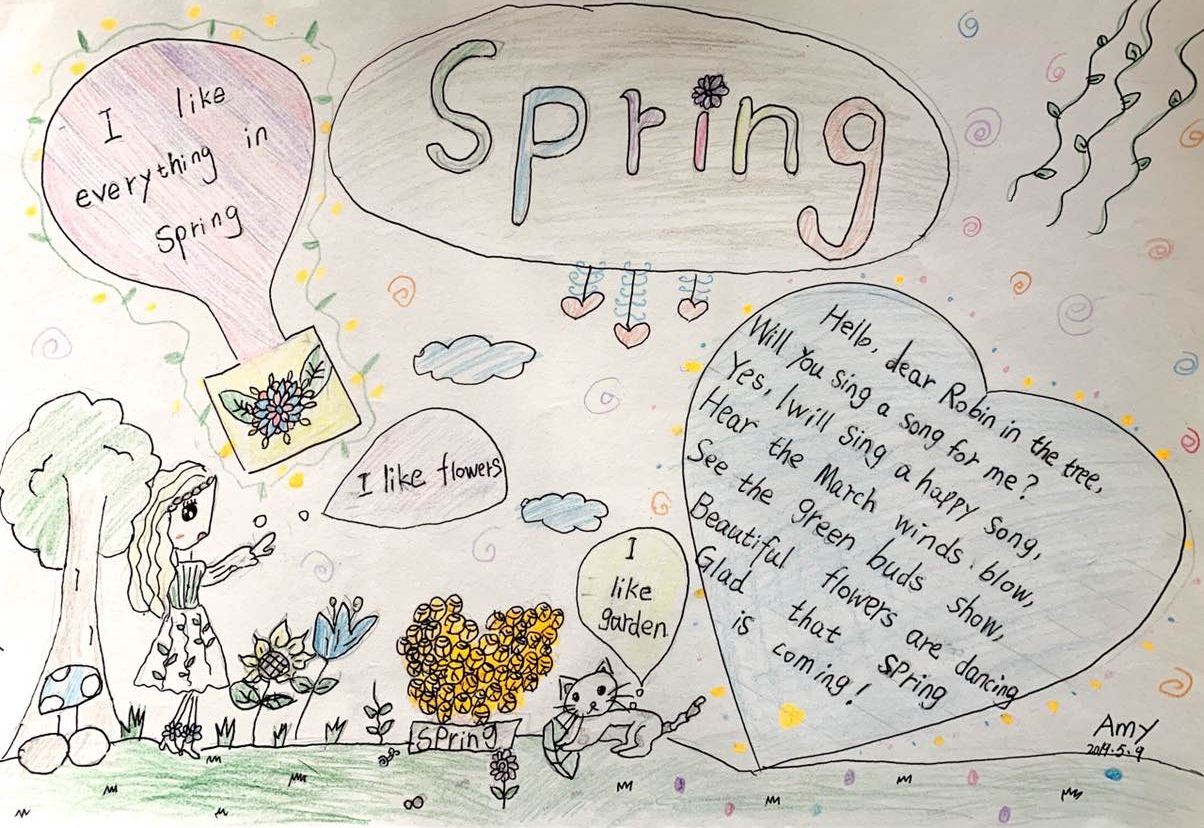 Spring
I like
everything in
Spring
I like flowers
I
like
garden
Hello, dear Robin in the tree,
Will you sing a song for me?
Yes, I will sing a happy song,
Hear the March winds blow,
See the green buds show,
Beautiful flowers are dancing
Glad that spring
is coming!
spring
Amy
2019.5.9